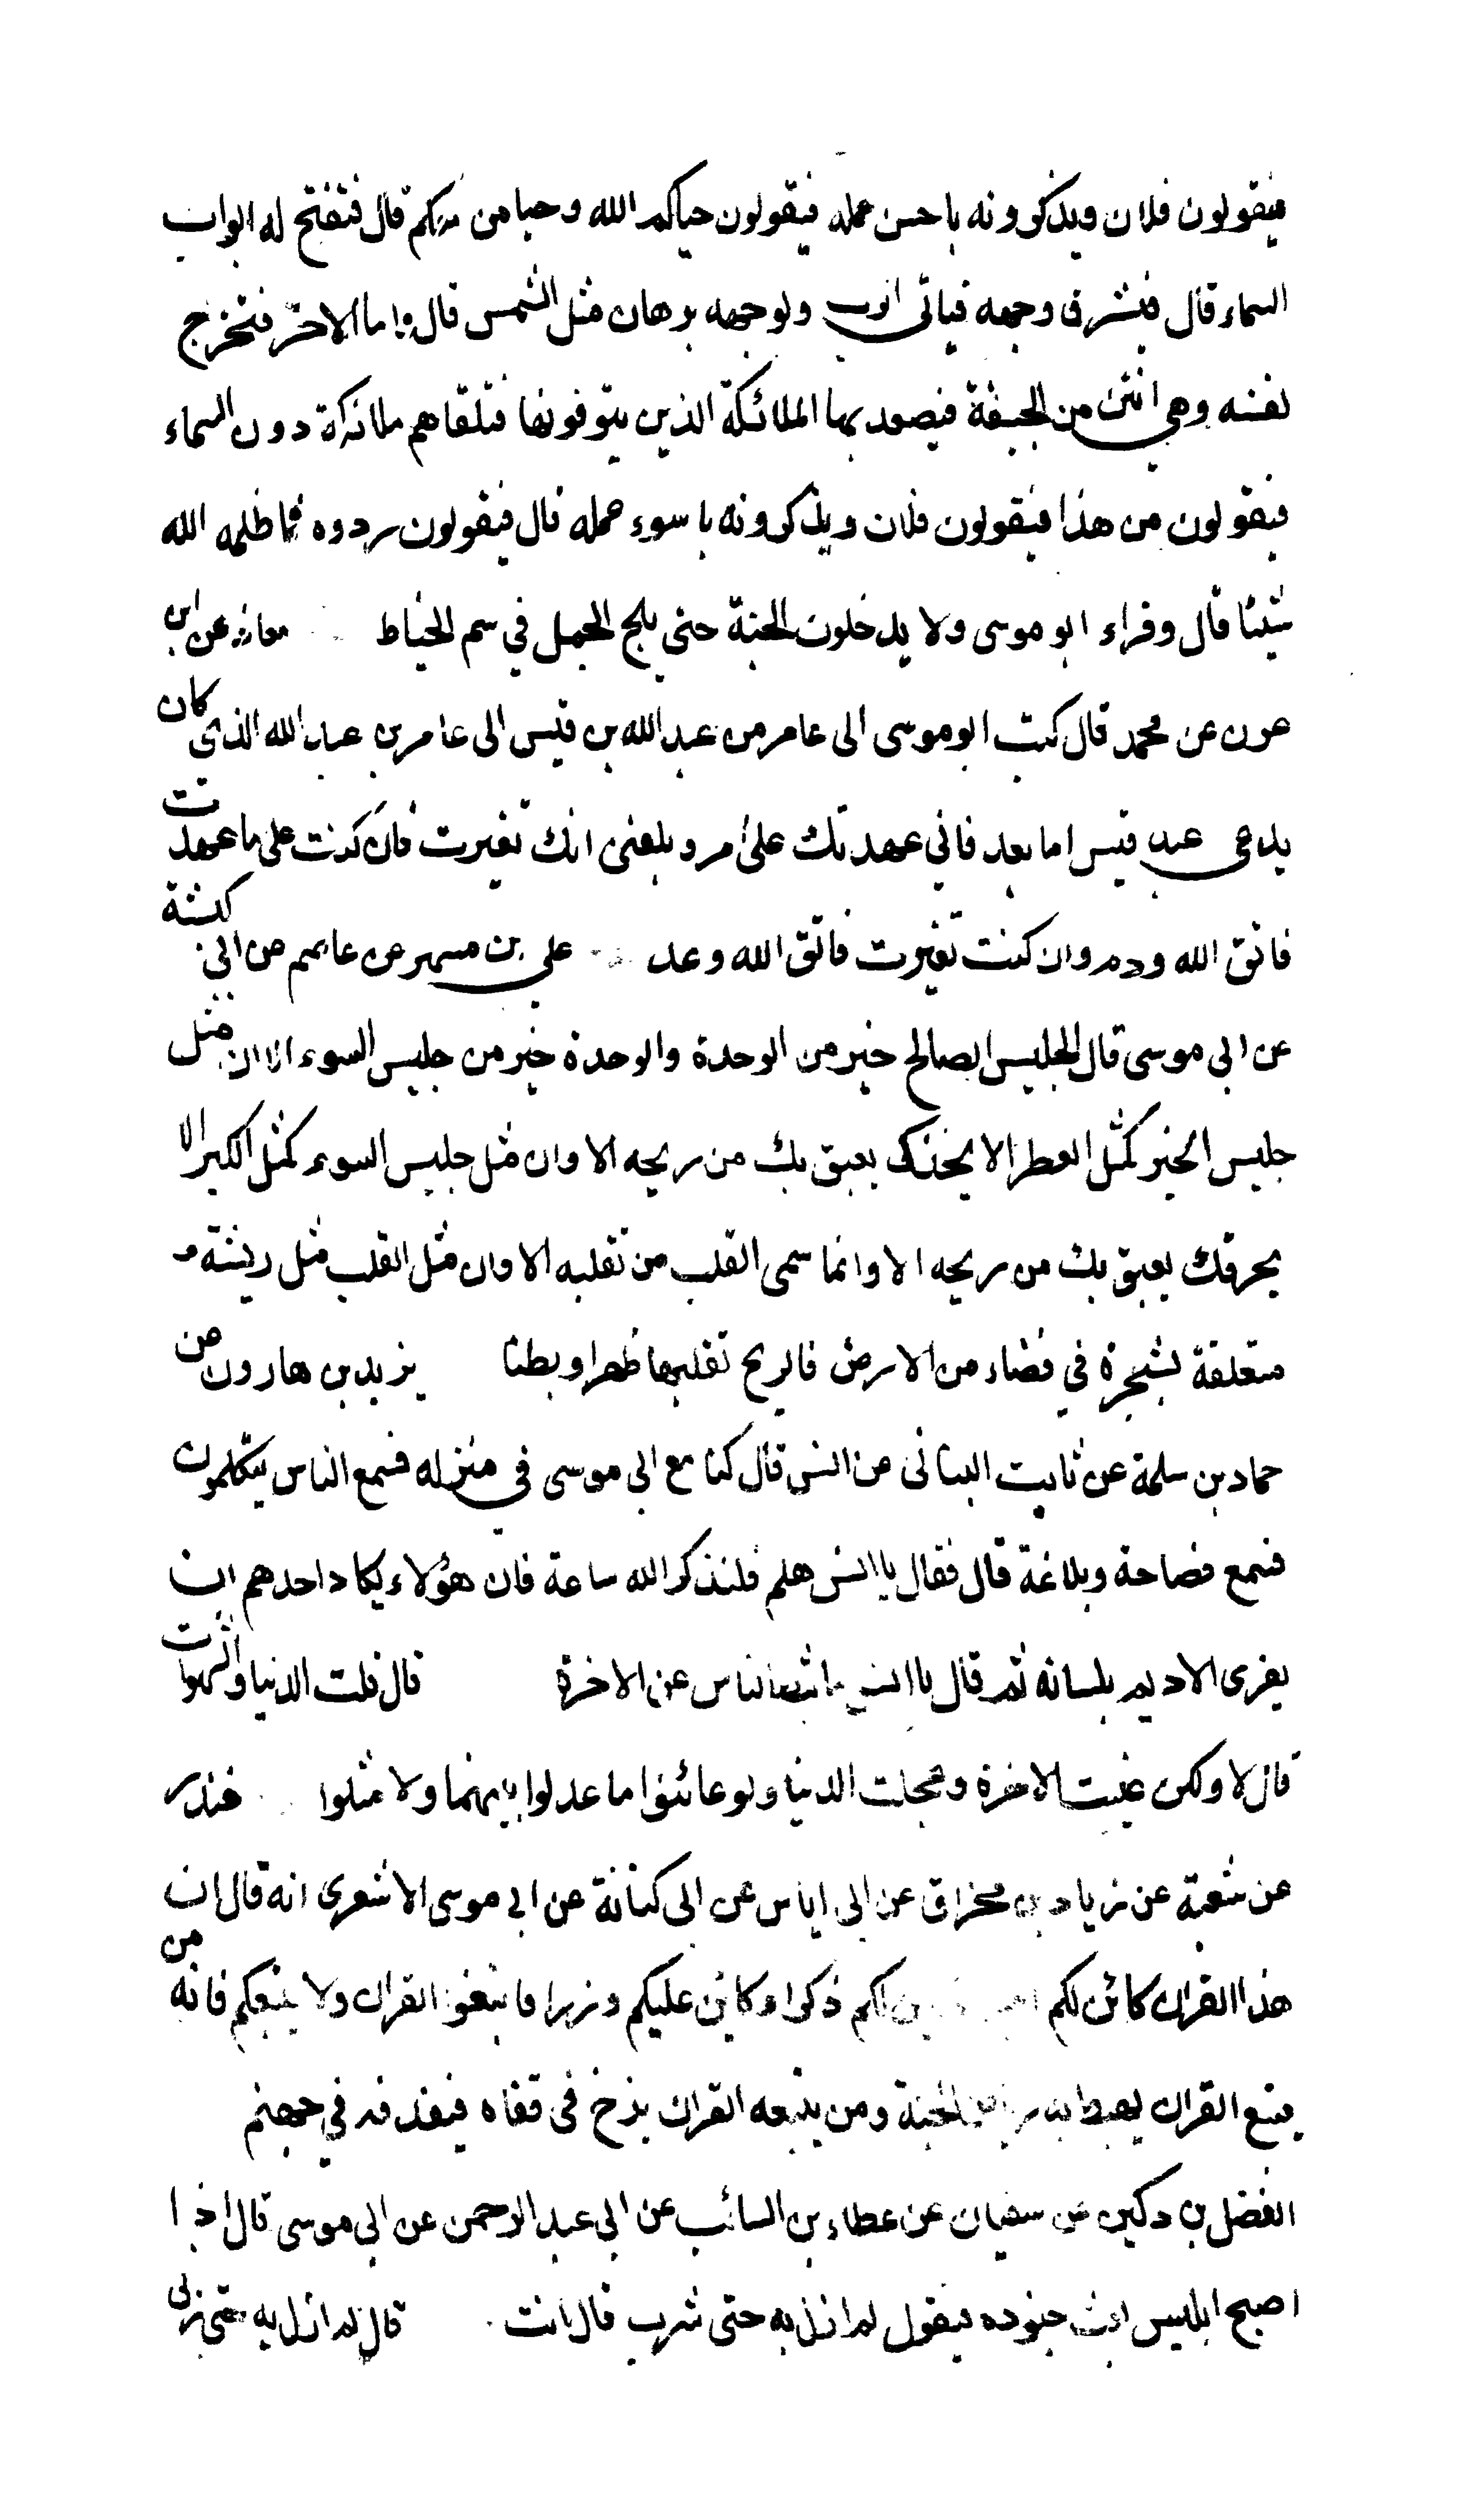 فيقولون فلان ويذكرونه باحسن عمله فيقولون حياكم الله وحيا من معكم قال فتفتح له ابواب
السماء قال فيشرق وجهه فياتي الرب ولوجهه برهان مثل الشمس قال واما الاخر فتخرج
نفسه وهي انتن من الجيفة فيصعد بها الملائكة الذين يتوفونها فتلقاهم ملائكة دون السماء
فيقولون من هذا فيقولون فلان ويذكرونه باسوء عمله قال فيقولون ردوه فما ظلمه الله
شيئا قال وقراء ابو موسى ولا يدخلون الجنة حتى يلج الجمل في سم الخياط معاذ عن ابن
عون عن محمد قال كتب ابو موسى الى عامر من عبد الله بن قيس الى عامر بن عبد الله الذي كان
يدعى عبد قيس اما بعد فاني عهدتك على امر وبلغنى انك تغيرت فان كنت على ما عهدت
فاتق الله ودم وان كنت تغيرت فاتق الله وعد علي بن مسهر عن عاصم عن ابي كبشة
عن ابي موسى قال الجليس الصالح خير من الوحدة والوحدة خير من جليس السوء الا ان مثل
جليس الخير كمثل العطر الا يحذك يعبق بك من ريحه الا وان مثل جليس السوء كمثل الكير الا
يحرقك يعبق بك من ريحه الا وانما سمى القلب من تقلبه الا وان مثل القلب مثل ريشة
متعلقة بشجرة في فضاء من الارض فالريح تقلبها ظهرا وبطنا يزيد بن هارون عن
حماد بن سلمة عن ثابت البنانى عن انس قال كنا مع ابي موسى في منزله فسمع الناس يتكلمون
فسمع فصاحة وبلاغة قال فقال يا انس هلم فلنذكر الله ساعة فان هؤلاء يكاد احدهم ان
يفرى الاديم بلسانه ثم قال يا انس ما الناس عن الاخرة قال قلت الدنيا والشهوات
قال لا ولكن غيبت الاخرة وعجلت الدنيا ولو عاينوا ما عدلوا بينهما ولا مثلوا غندر
عن شعبة عن زياد بن مخراق عن ابي اياس عن ابي كنانة عن ابي موسى الاشعرى انه قال ان
هذا القران كائن لكم لكم ذكرا وكائن عليكم وزرا فاتبعوا القران ولا يتبعكم فانه من
يتبع القران يهبط به الجنة ومن يتبعه القران يزخ في قفاه فيقذفه في جهنم
الفضل بن دكين عن سفيان عن عطاء بن السائب عن ابي عبد الرحمن عن ابي موسى قال اذا
اصبح ابليس بث جنوده فيقول لم ازل به حتى شرب قال انت قال لم ازل به حتى زنى